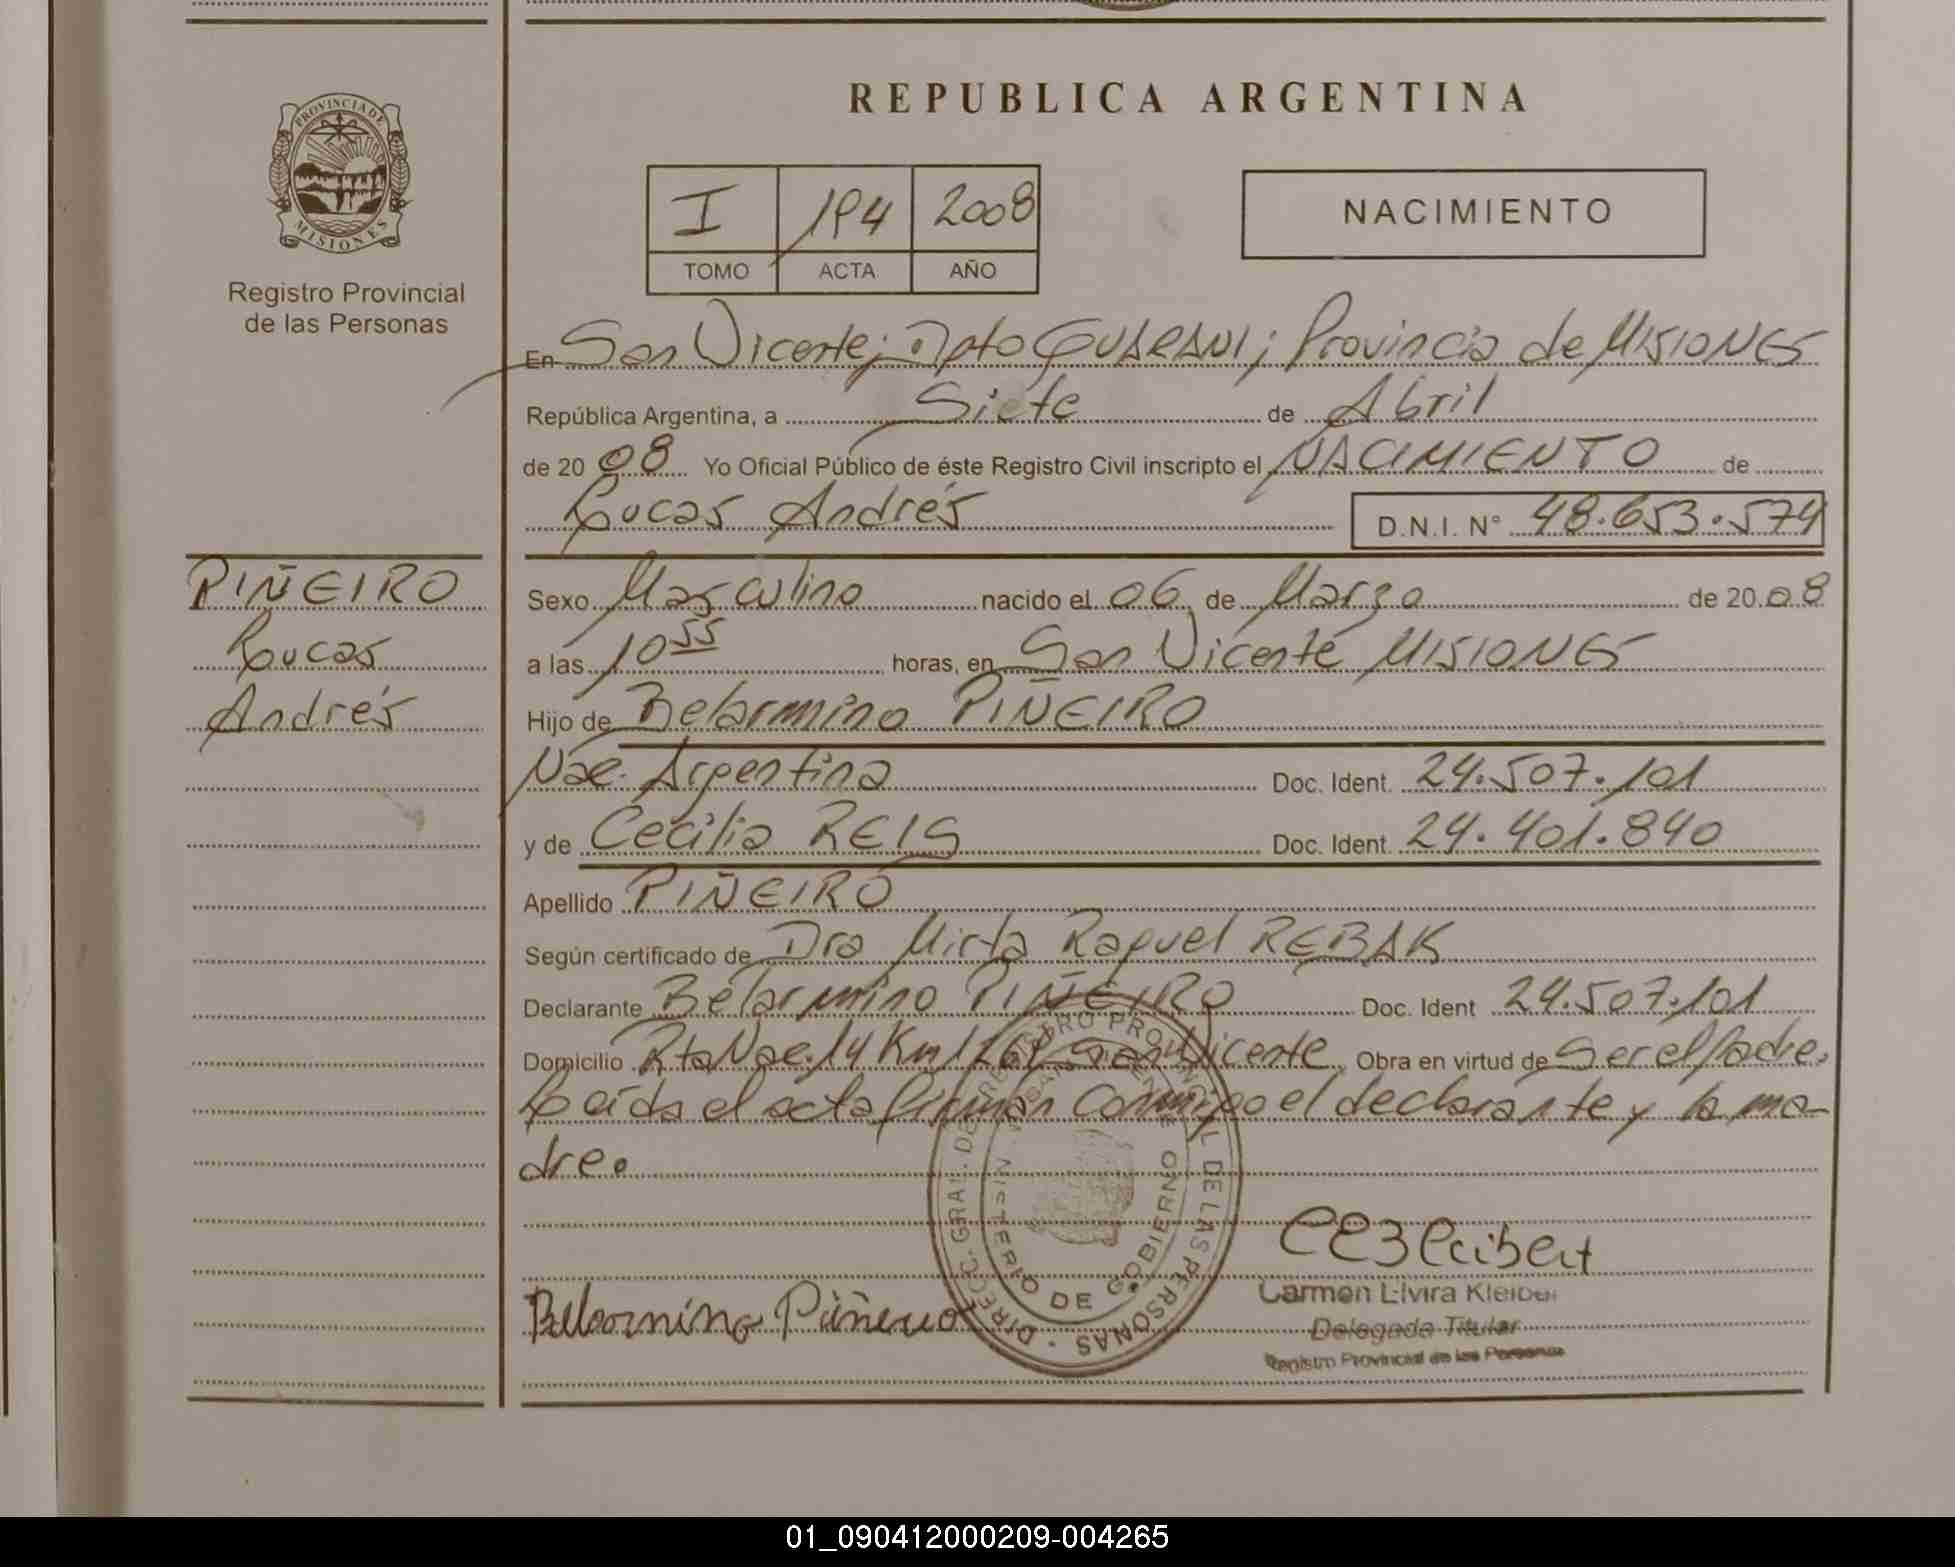 REPUBLICA ARGENTINA
PROVINCIA DE
MISIONES
Registro Provincial
de las Personas
I 194 2008
TOMO ACTA AÑO
NACIMIENTO
En San Vicente; Dpto GUARANI; Provincia de MISIONES
República Argentina, a Siete de Abril
de 20 08 Yo Oficial Público de éste Registro Civil inscripto el NACIMIENTO de
Lucas Andrés D.N.I. N° 48.653.574
PIÑEIRO
Lucas
Andrés
Sexo Masculino nacido el 06 de Marzo de 20 08
a las 10 55 horas, en San Vicente MISIONES
Hijo de Belarmino PIÑEIRO
Nac. Argentina Doc. Ident. 24.507.101
y de Cecilia REIS Doc. Ident. 24.401.840
Apellido PIÑEIRO
Según certificado de Dra Mirta Raquel REBAK
Declarante Belarmino PIÑEIRO Doc. Ident 24.507.101
Domicilio Rta Nac. 14 Km San Vicente Obra en virtud de Ser el Padre.
Leída el acta firman conmigo el declarante y la ma-
dre.
DIRECC. GRAL. DE REGISTRO PROVINCIAL DE LAS PERSONAS
MINISTERIO DE GOBIERNO
Belarmino Piñeiro
Carmen Elvira Kleiber
Delegada Titular
Registro Provincial de las Personas
01_090412000209-004265